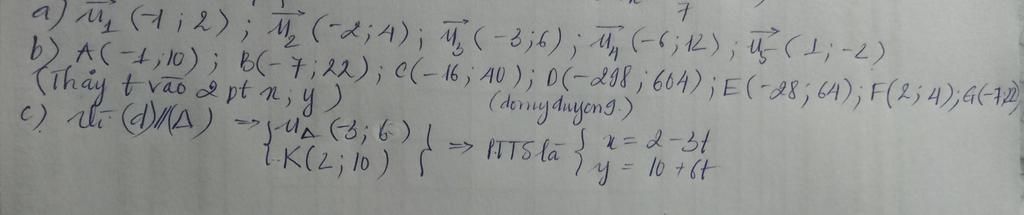 7
a) u₁ (-1 ; 2) ; u₂ (-2 ; 4) ; u₃ (-3 ; 6) ; u₄ (-6 ; 12) ; u₅ (1 ; -2)
b) A(-1 ; 10) ; B(-7 ; 22) ; C(-16 ; 40) ; D(-298 ; 604) ; E(-28 ; 64) ; F(2 ; 4) ; G(-7 ; 22)
(Thầy t vào 2 pt x ; y) (domyduyen9.)
c) Vì (d)//(Δ) => { uΔ (-3 ; 6) } => PTTS là { x = 2 - 3t
K(2 ; 10) y = 10 + 6t